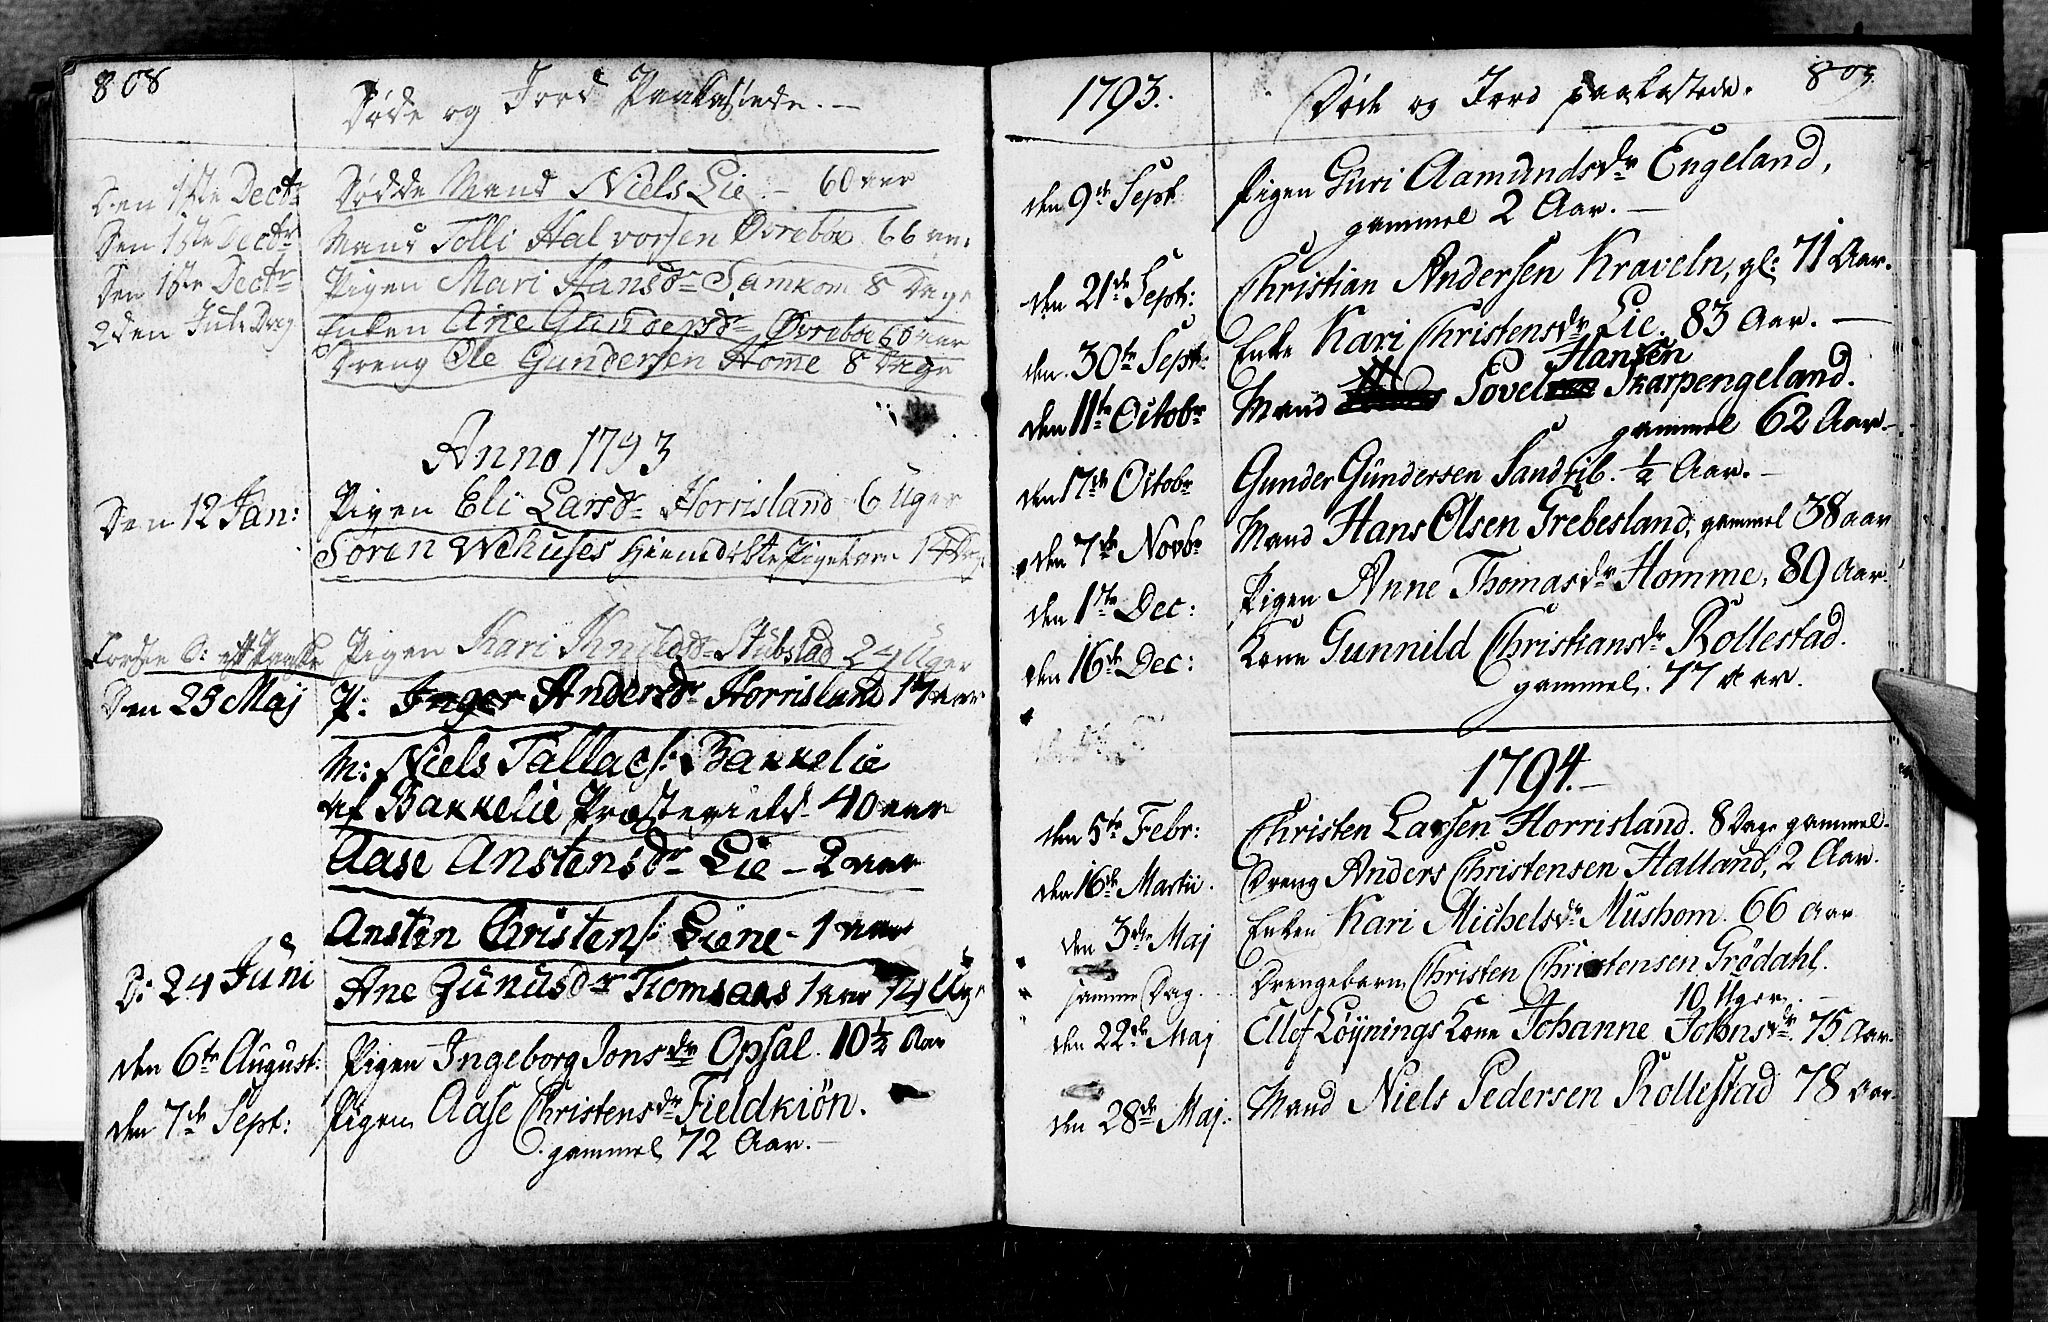 808
Døde og Jord Paakastede. —
Den 1ste Dectr
Døde Mand Niels Lie — 60 aar
Den 1ste Dectr
Mand Tolli Halvorsen Øvrebøe 66 aar
Den 1ste Dectr
Pigen Mari Hansdr Samkom 8 Dage
2den Jule Dag
Enken Ane Gundersdr Øvrebøe 60 aar
Dreng Ole Gundersen Home 8 Dage
Anno 1793
Den 12 Jan:
Pigen Eli Larsdr Horrisland 6 Uger
Søren Wehuses hiemdøbte Pigebarn 14 Dag
Pigen Kari Knudsdr Stubstad 24 Uger
Den 23 Maj
P: Inger Andersdr Horrisland 14 aar
M: Niels Tallacs: Bakkelie
af Bakkelie Præstegield - 40 aar
Aase Anstensdr Lie - 2 aar
Ansten Christens: Liene - 1 aar
D: 24 Juni
Ane Zunusdr Komsaas 1 aar 14 Uge
den 6te August:
Pigen Ingeborg Jonsdr Opsal. 10 1/2 Aar
den 7de Sept:
Pigen Aase Christensdr Fieldkiøn.
gammel 72 Aar. —
1793.
Døde og Jord paakastede.
809.
den 9de Sept
Pigen Guri Aamundsdr Engeland,
gammel 2 Aar. —
den 21de Sept:
Christian Andersen Kraveln, gl: 71 Aar.
den 30te Sept:
Enke Kari Christensdr Lie. 83 Aar. —
Hansen
den 11te Octobr
Mand Sovel Skarpengeland.
gammel 62 Aar.
den 17de Octobr
Gunder Gundersen Sandrib. 1/2 Aar. —
den 7de Novbr
Mand Hans Olsen Grebesland, gammel 38 aar
den 1ste Dec:
Pigen Anne Thomasdr Homme, 89 Aar.
den 16de Dec:
Kone Gunnild Christiansdr Rollestad.
gammel. 77 Aar.
1794. —
den 5te Febr:
Christen Larsen Horrisland. 8 Dage gammel.
den 16de Martii.
Dreng Anders Christensen Halland, 2 Aar.
den 3die Maj
Enken Kari Michelsdr Mushom. 66 Aar
samme Dag.
Drengebarn Christen Christensen Grødahl.
10 Uger. —
den 22de Maj
Ellef Løynings Kone Johanne Johnsdr. 75 Aar.
den 28de Maj:
Mand Niels Pedersen Rollestad 78 Aar.